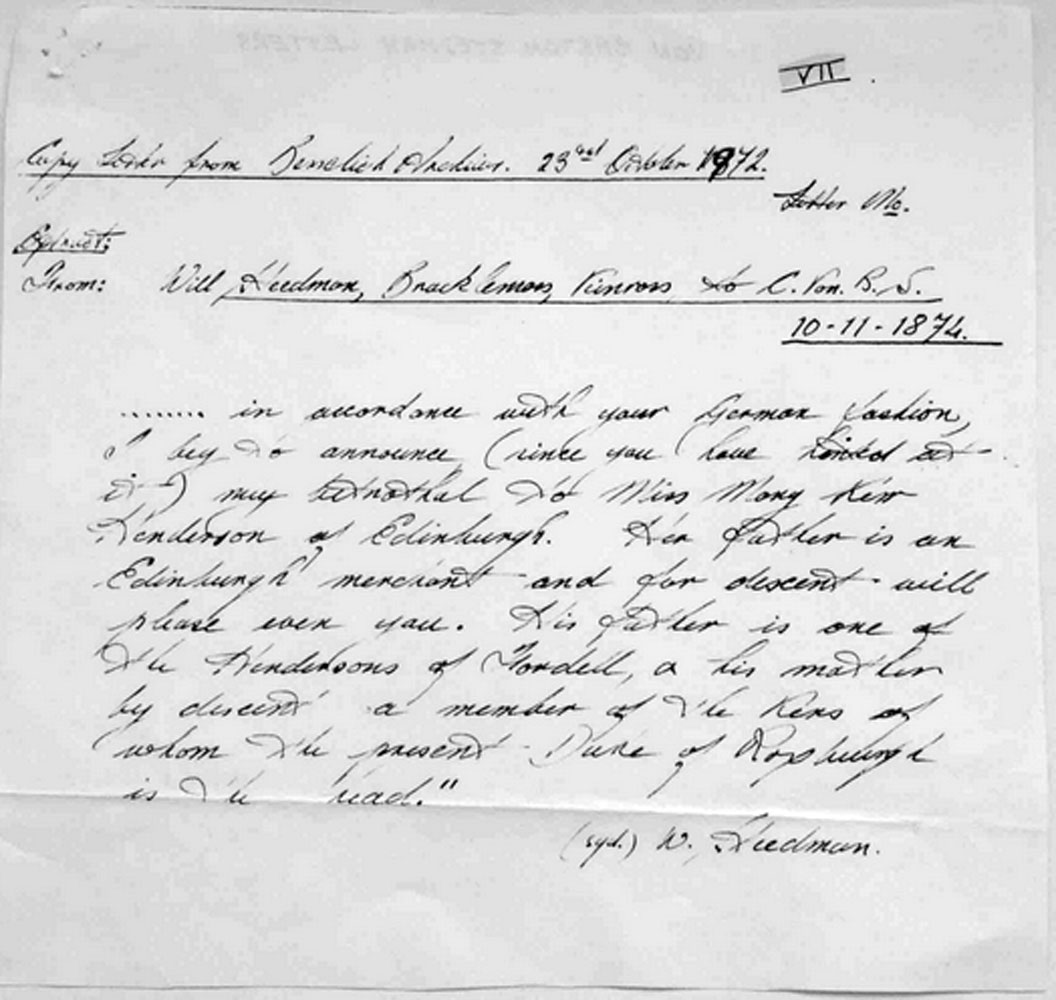 VII
Copy Letter from Benedict Archives. 23rd October 1972.
Letter No.
Extract:
From: Will Steedman, Bracklemoss, Kinross, to C. Von. B. S.
10-11-1874.
........ in accordance with your German fashion,
I beg to announce (since you have hinted at
it) my betrothal to Miss Mary Kerr
Henderson of Edinburgh. Her father is an
Edinburgh merchant and for descent will
please even you. His father is one of
the Hendersons of Fordell, a his mother
by descent a member of the Kers of
whom the present Duke of Roxburgh
is the head."
(sgd.) W. Steedman.